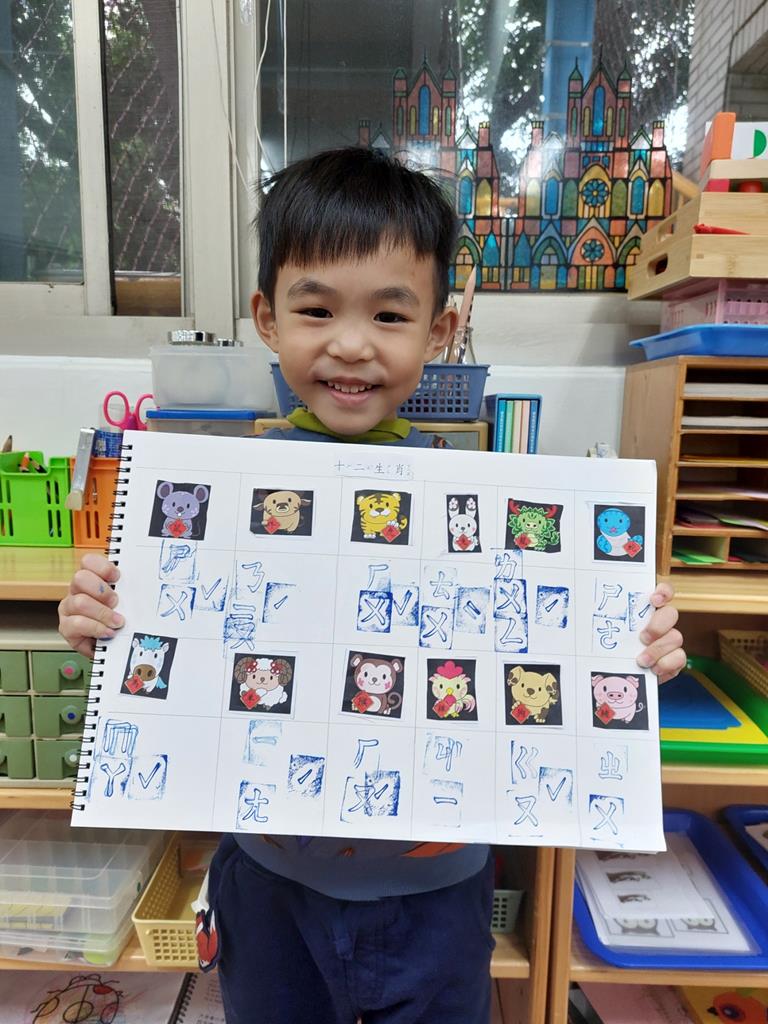 十二生肖
ㄕㄨˇ ㄋㄧㄡˊ ㄏㄨˇ ㄊㄨˋ ㄌㄨㄥˊ ㄕㄜˊ
ㄇㄚˇ ㄧㄤˊ ㄏㄡˊ ㄐㄧ ㄍㄡˇ ㄓㄨ